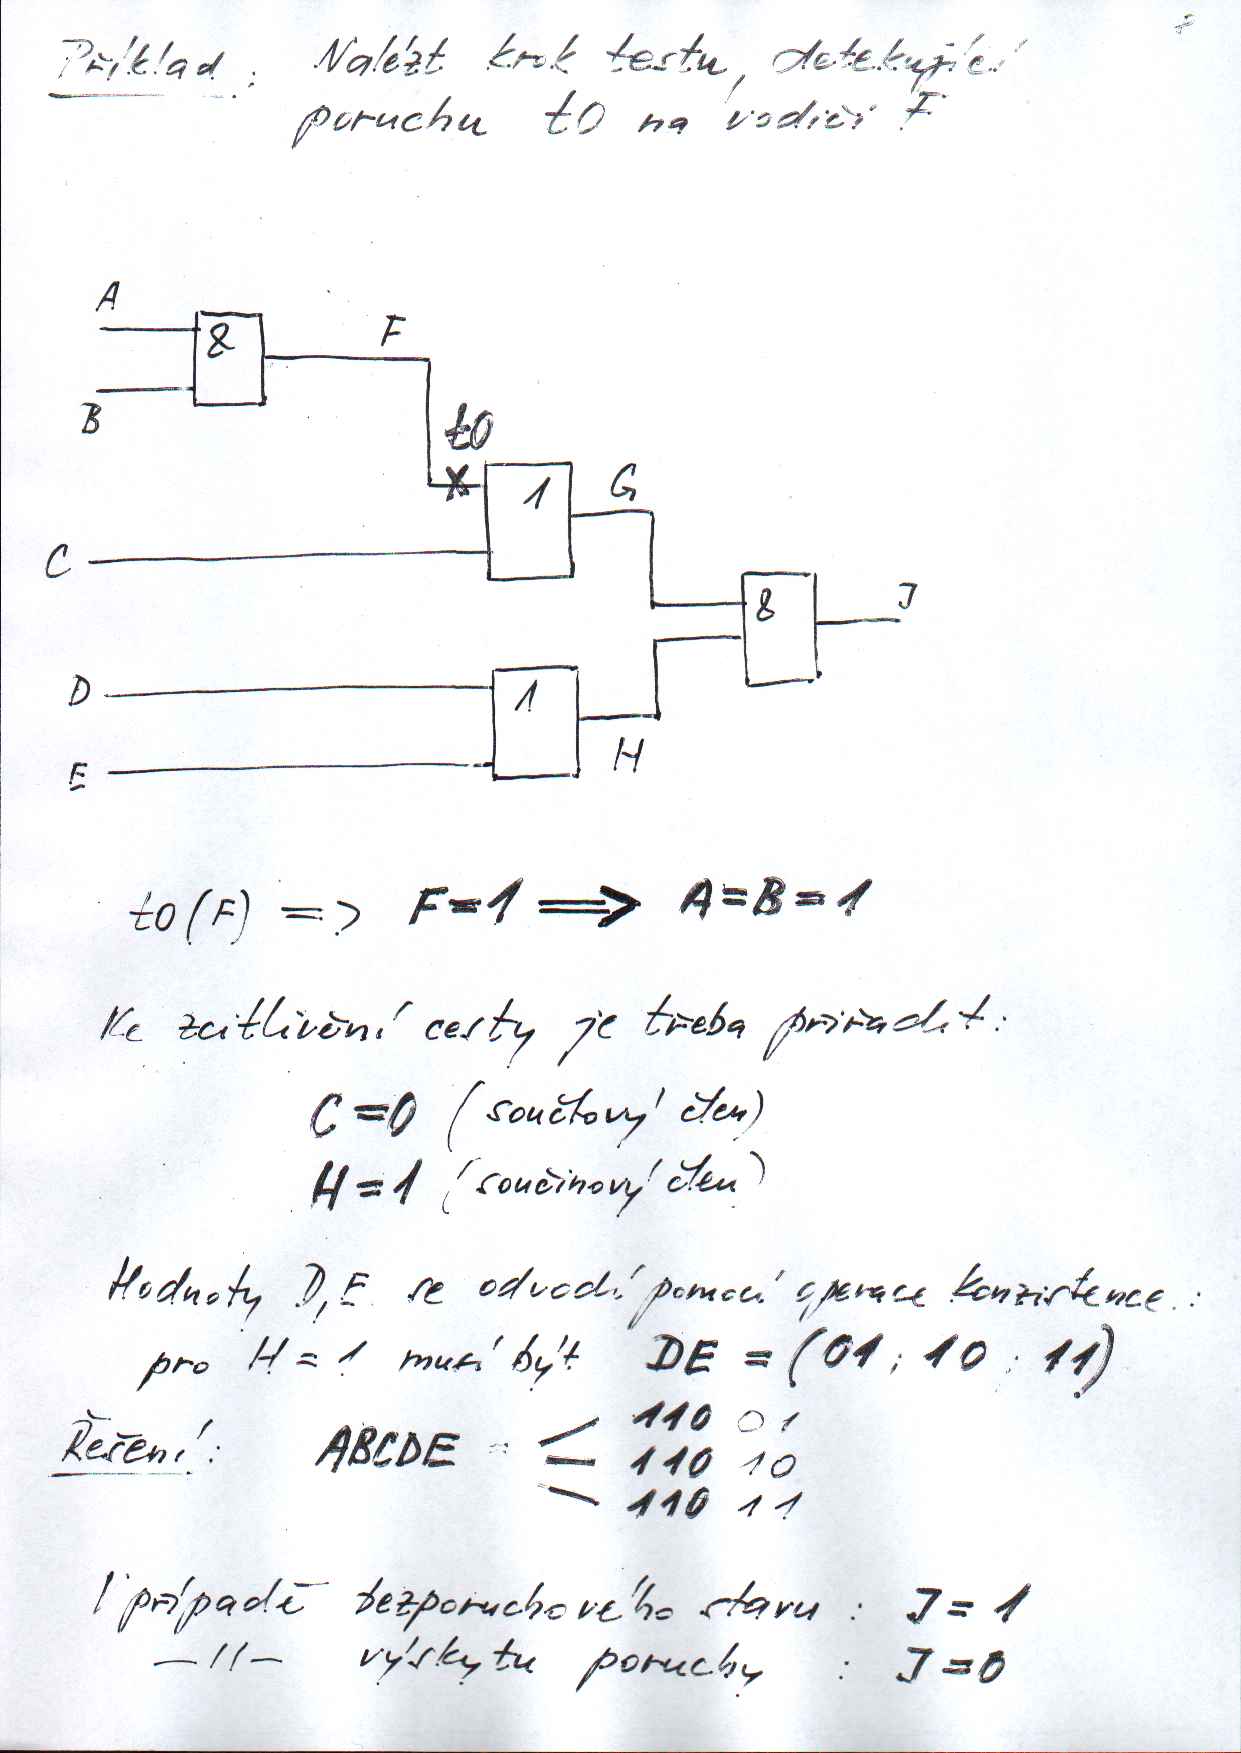 Příklad: Nalézt krok testu, detekující
poruchu t0 na vodiči F
A
&
F
B
t0
1
G
C
&
J
D
1
E
H
t0(F) => F=1 => A=B=1
Ke zcitlivění cesty je třeba přiřadit:
C=0 (součtový člen)
H=1 (součinový člen)
Hodnoty D,E se odvodí pomocí operace konzistence:
pro H=1 musí být DE = (01; 10; 11)
Řešení: ABCDE = 110 01
110 10
110 11
V případě bezporuchového stavu: J=1
—//— výskytu poruchy : J=0